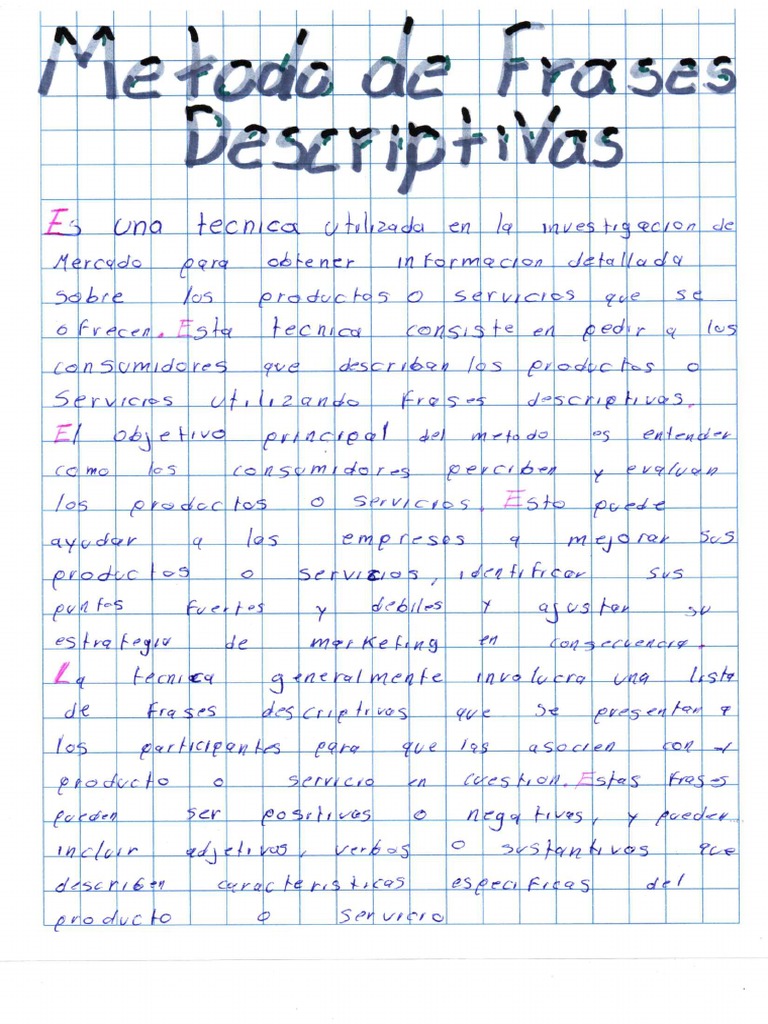 Metodo de Frases
Descriptivas
Es una tecnica utilizada en la investigacion de
Mercado para obtener informacion detallada
sobre los productos o servicios que se
ofrecen. Esta tecnica consiste en pedir a los
consumidores que describan los productos o
Servicios utilizando frases descriptivas.
El objetivo principal del metodo es entender
como los consumidores perciben y evaluan
los productos o servicios. Esto puede
ayudar a las empresas a mejorar sus
productos o servicios, identificar sus
puntos fuertes y debiles y ajustar su
estrategia de marketing en consecuencia.
La tecnica generalmente involucra una lista
de frases descriptivas que se presentan a
los participantes para que las asocien con
producto o servicio en cuestion. Estas frases
pueden ser positivas o negativas, y pueden
incluir adjetivos, verbos o sustantivos que
describen caracteristicas especificas del
producto o servicio